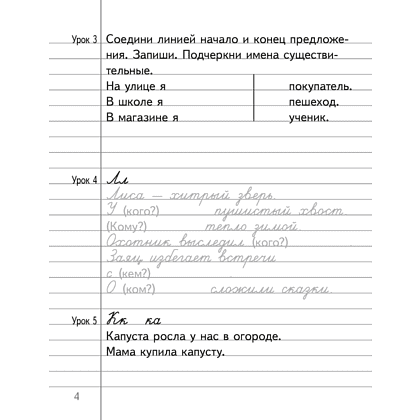 Урок 3 Соедини линией начало и конец предложе-
ния. Запиши. Подчеркни имена существи-
тельные.
На улице я покупатель.
В школе я пешеход.
В магазине я ученик.
Урок 4 Лл
Лиса — хитрый зверь.
У (кого?) пушистый хвост.
(Кому?) тепло зимой.
Охотник выследил (кого?)
Заяц избегает встречи
с (кем?)
О (ком?) сложили сказки.
Урок 5 Кк ка
Капуста росла у нас в огороде.
Мама купила капусту.
4